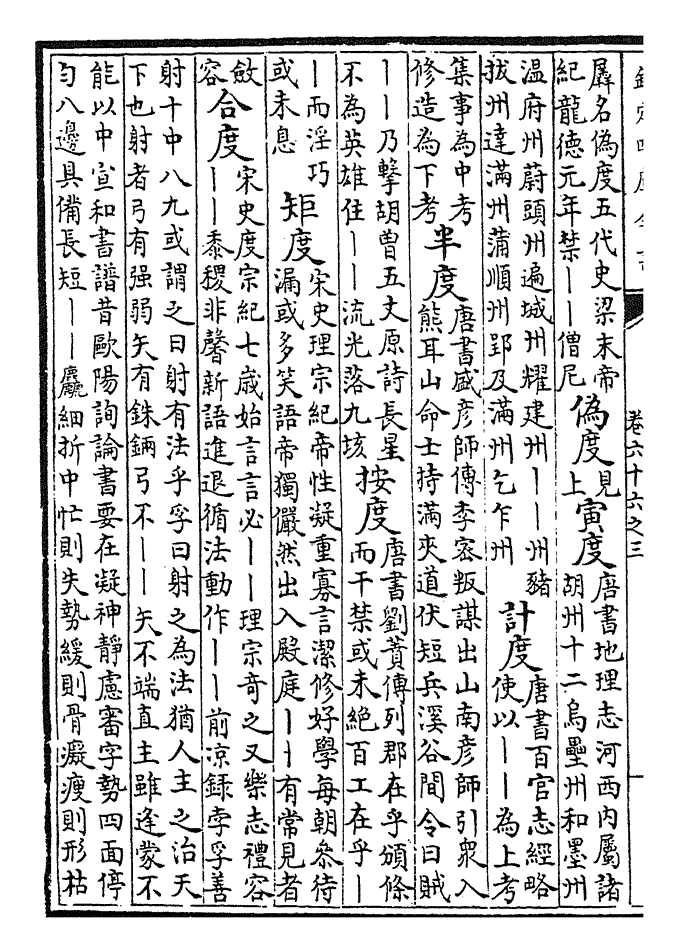 卷六十六之三
羼名偽度五代史梁末帝
紀龍德元年禁丨丨僧尼
偽度
見
上
寅度
唐書地理志河西内屬諸
胡州十二烏壘州和墨州
溫府州蔚頭州遍城州耀建州丨丨州豬
拔州達滿州蒲順州郢及滿州乞乍州
計度
唐書百官志經略
使以丨丨為上考
集事為中考
修造為下考
半度
唐書盛彥師傳李密叛謀出山南彥師引衆入
熊耳山命士持滿夾道伏短兵溪谷間令曰賊
丨丨乃擊胡曾五丈原詩長星
不為英雄住丨丨流光落九垓
按度
唐書劉蕡傳列郡在乎頒條
而干禁或未絕百工在乎丨
丨而淫巧
或未息
矩度
宋史理宗紀帝性凝重寡言潔修好學每朝叅待
漏或多笑語帝獨儼然出入殿庭丨丨有常見者
斂
容
合度
宋史度宗紀七歲始言言必丨丨理宗奇之又樂志禮容
丨丨黍稷非馨新語進退循法動作丨丨前凉録李孚善
射十中八九或謂之曰射有法乎孚曰射之為法猶人主之治天
下也射者弓有强弱矢有銖鋼弓不丨丨矢不端直主雖逢蒙不
能以中宣和書譜昔歐陽詢論書要在凝神靜慮審字勢四面停
匀八邊具備長短丨丨麤細折中忙則失勢緩則骨癡瘦則形枯